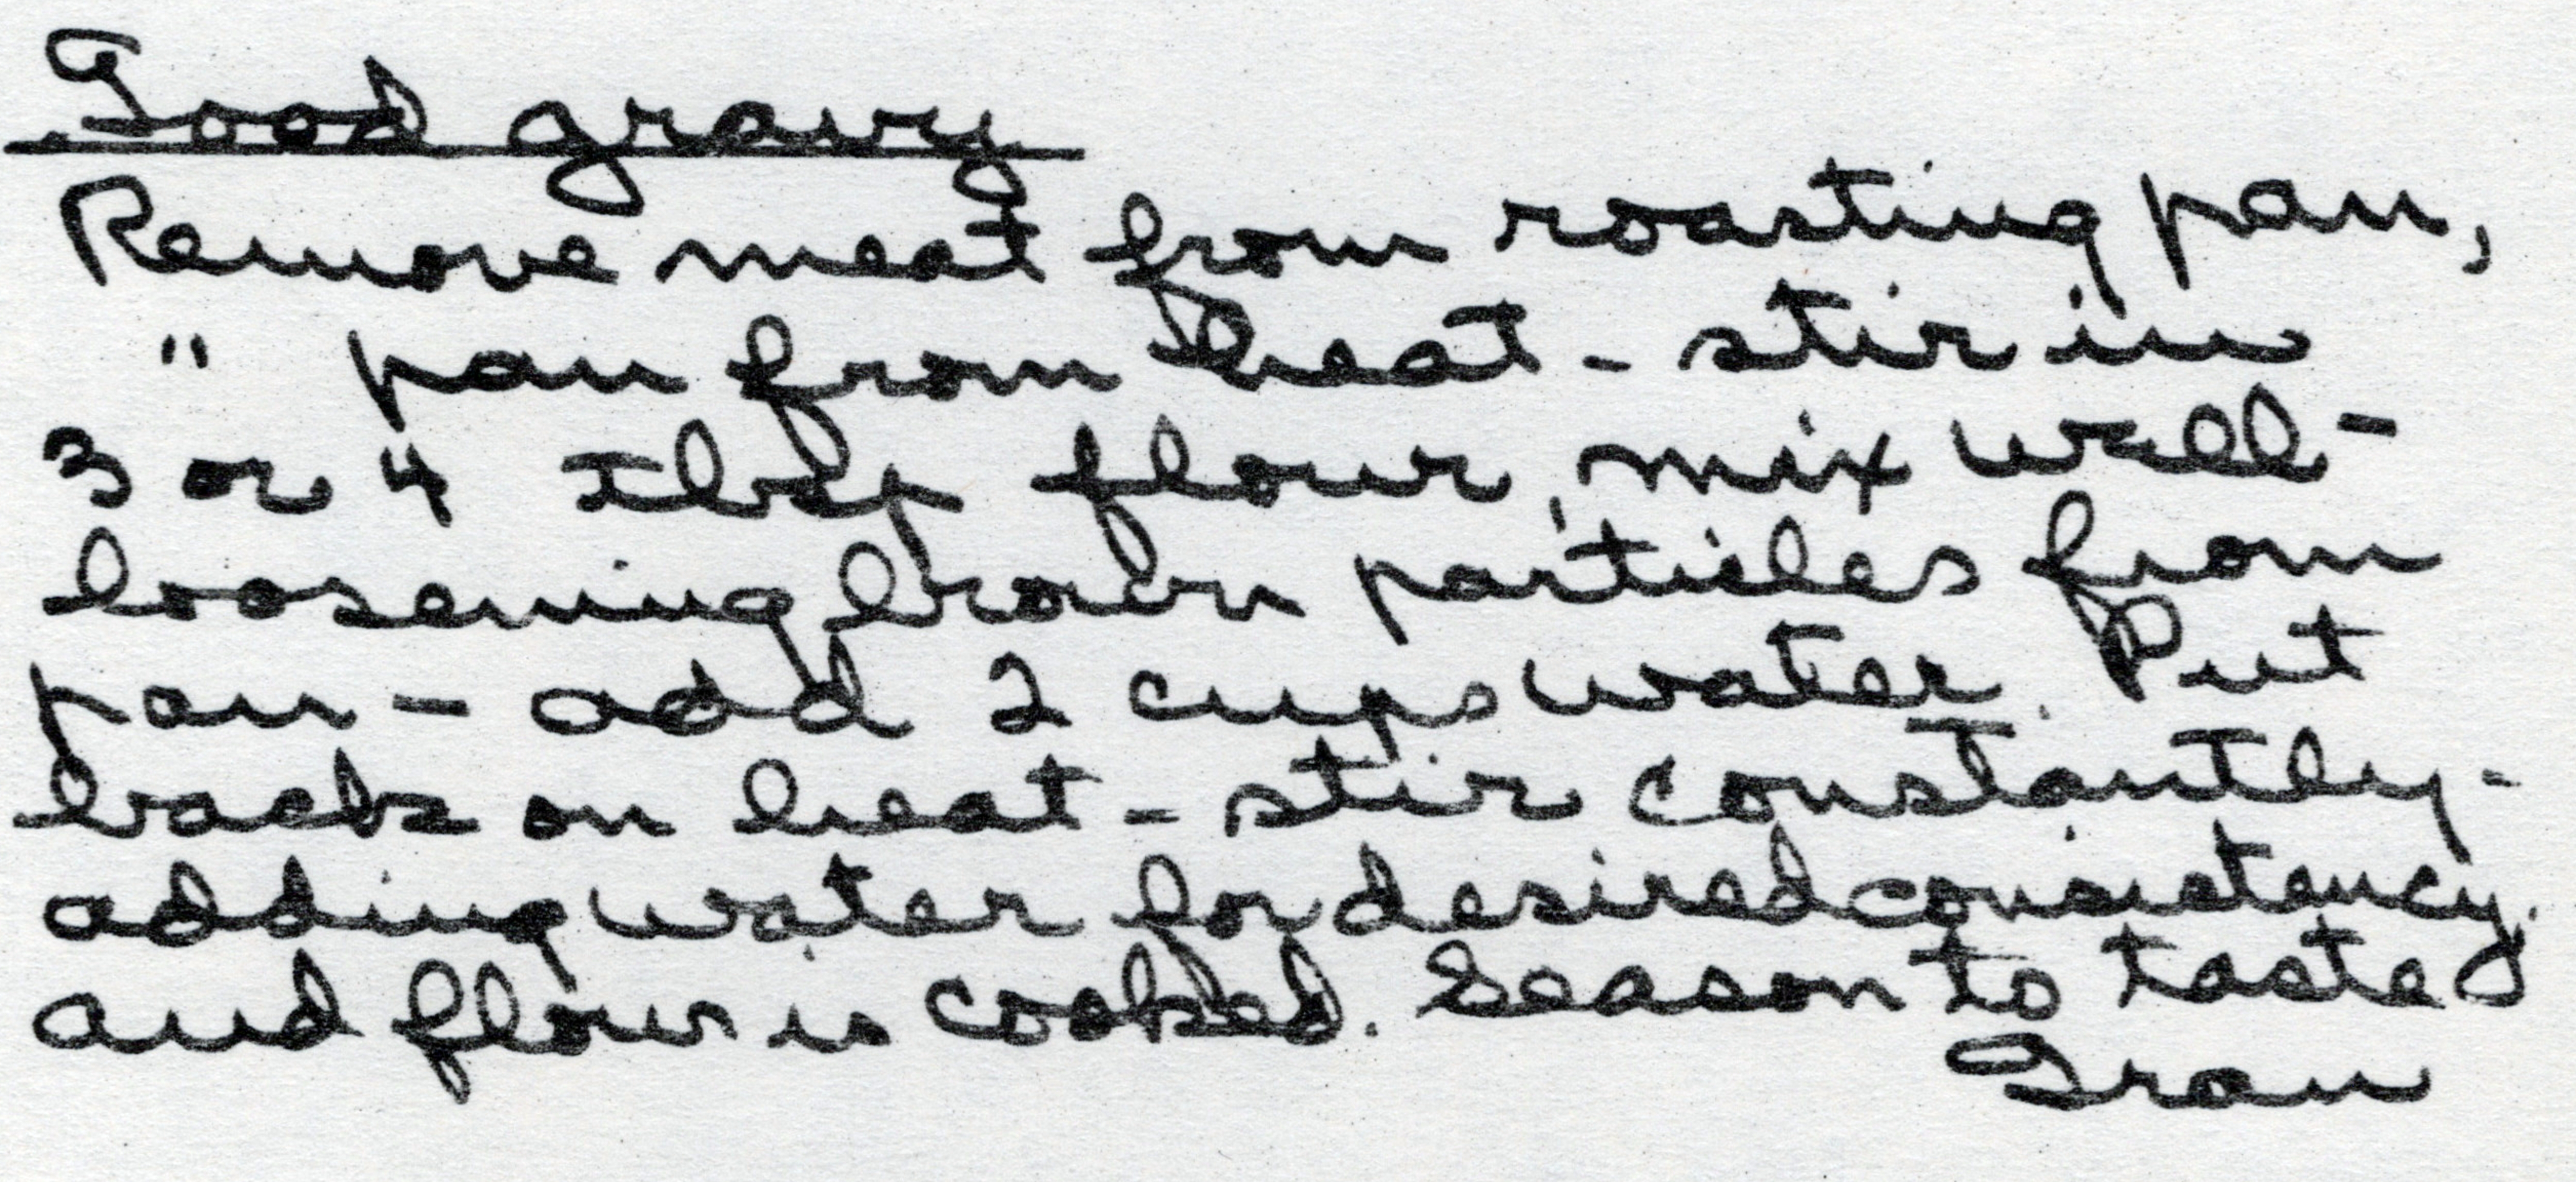 Good gravy
Remove meat from roasting pan,
" pan from heat - stir in
3 or 4 tbsp flour, mix well -
loosening brown particles from
pan - add 2 cups water. Put
back on heat - stir constantly -
adding water for desired consistency.
and flour is cooked. Season to taste
Gran